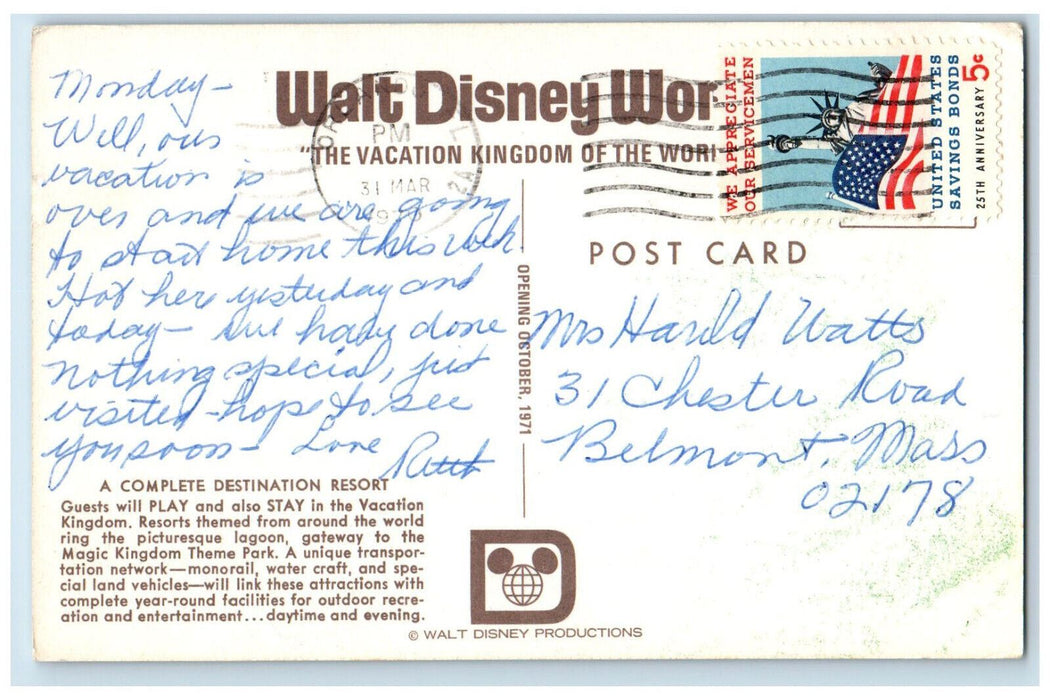 Walt Disney Wor
"THE VACATION KINGDOM OF THE WORl
PM
31 MAR
WE APPRECIATE
OUR SERVICEMEN
UNITED STATES
SAVINGS BONDS
25TH ANNIVERSARY
5¢
Monday-
Well, our
vacation is
over and we are going
to start home this week.
Hot here yesterday and
today- we have done
nothing special, just
visited-hope to see
you soon- Love
Ruth
POST CARD
OPENING OCTOBER, 1971
Mrs Harold Watts
31 Chester Road
Belmont, Mass
02178
A COMPLETE DESTINATION RESORT
Guests will PLAY and also STAY in the Vacation
Kingdom. Resorts themed from around the world
ring the picturesque lagoon, gateway to the
Magic Kingdom Theme Park. A unique transpor-
tation network—monorail, water craft, and spe-
cial land vehicles—will link these attractions with
complete year-round facilities for outdoor recre-
ation and entertainment...daytime and evening.
© WALT DISNEY PRODUCTIONS